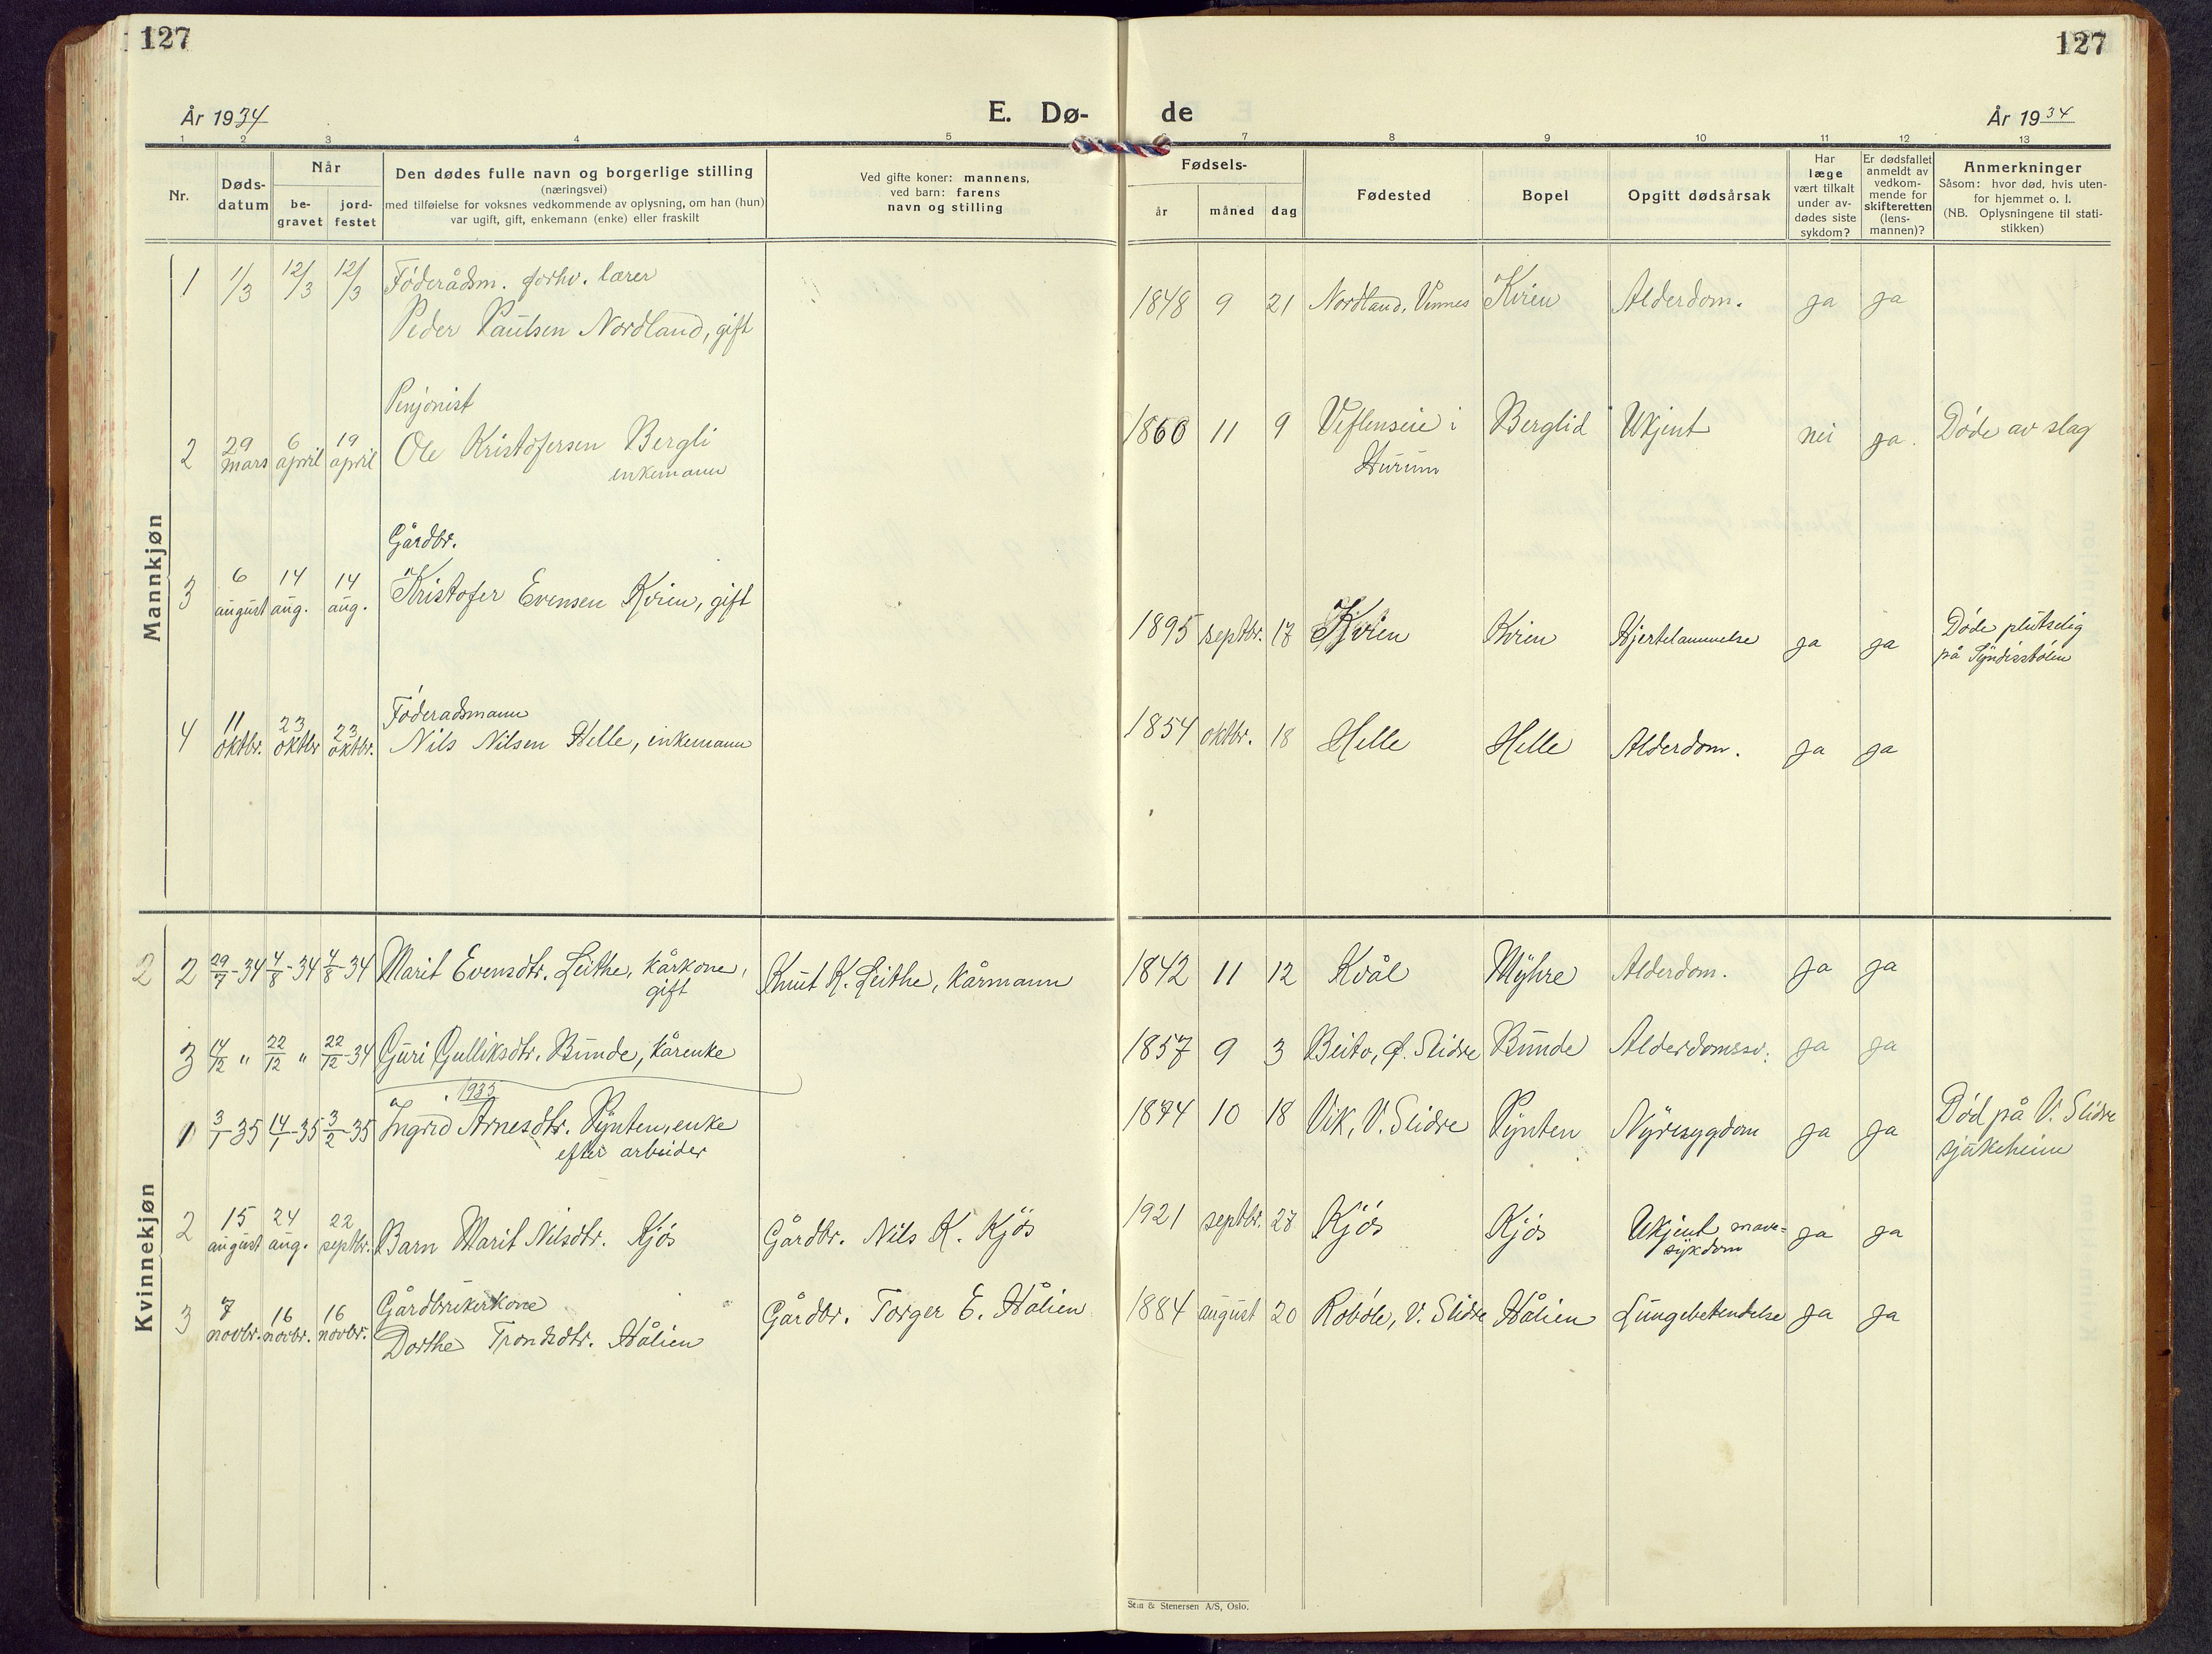 127
127
År 1934
E. Dø-
de
År 1934
1 2 3 4 5 7 8 9 10 11 12 13
Nr.
Døds-
datum
Når
be-
gravet
jord-
festet
Den dødes fulle navn og borgerlige stilling
(næringsvei)
med tilføielse for voksnes vedkommende av oplysning, om han (hun)
var ugift, gift, enkemann (enke) eller fraskilt
Ved gifte koner: mannens,
ved barn: farens
navn og stilling
Fødsels-
år måned dag
Fødested
Bopel
Opgitt dødsårsak
Har
læge
vært tilkalt
under av-
dødes siste
sykdom?
Er dødsfallet
anmeldt av
vedkom-
mende for
skifteretten
(lens-
mannen)?
Anmerkninger
Såsom: hvor død, hvis uten-
for hjemmet o. l.
(NB. Oplysningene til stati-
stikken)
Mannkjøn
1 1/3 12/3 12/3 Föderådsm. forhv. lærer
Peder Paulsen Nordland, gift
1848 9 21 Nordland, Vinnes Kvien Alderdom. ja ja
Penjonist
2 29 mars 6 april 19 april Ole Kristofersen Bergli
enkemann
1860 11 9 Veflenseie i
Hurum
Berglid Ukjent nei ja. Döde av slag
Gårdbr.
3 6 august 14 aug. 14 aug. Kristofer Evensen Kvien, gift
1895 septbr. 17 Kvien Kvien Hjertelammelse ja ja Döde plutselig
på Syndisstölen
Föderadsmann
4 11 oktbr. 23 oktbr 23 oktbr. Nils Nilsen Helle, enkemann
1854 oktbr. 18 Helle Helle Alderdom. ja ja
Kvinnekjøn
2 2 29/7-34 4/8-34 4/8-34 Marit Evensdtr. Leithe, kårkone,
gift
Knut K. Leithe, kårmann
1842 11 12 Kvål Myhre Alderdom. ja ja
3 " 22/12 " 22/12-34 Guri Gulliksdtr. Bunde, kårenke
1857 9 3 Beito, Ø. Slidre Bunde Alderdomssv. ja ja
1935
1 3/1-35 14/1-35 3/2-35 Ingrid Arnesdtr. Pynten, enke
efter arbeider
10 18 Vik, V. Slidre Pynten Nyresygdom ja ja Död på V. Slidre
sjukeheim
2 15 august 24 aug. 22 septbr. Barn Marit Nilsdtr. Kjös Gårdbr. Nils K. Kjös
1921 septbr. 27 Kjös Kjös Ukjent mave-
sykdom
ja ja
3 7 novbr. 16 novbr. 16 novbr. Gårdbrukerkone
Dorthe Trondsdtr. Hålien
Gårdbr. Torger E. Hålien
1884 august 20 Roböle, V. Slidre Hålien Lungebetendelse ja ja
Sten & Stenersen A/S, Oslo.